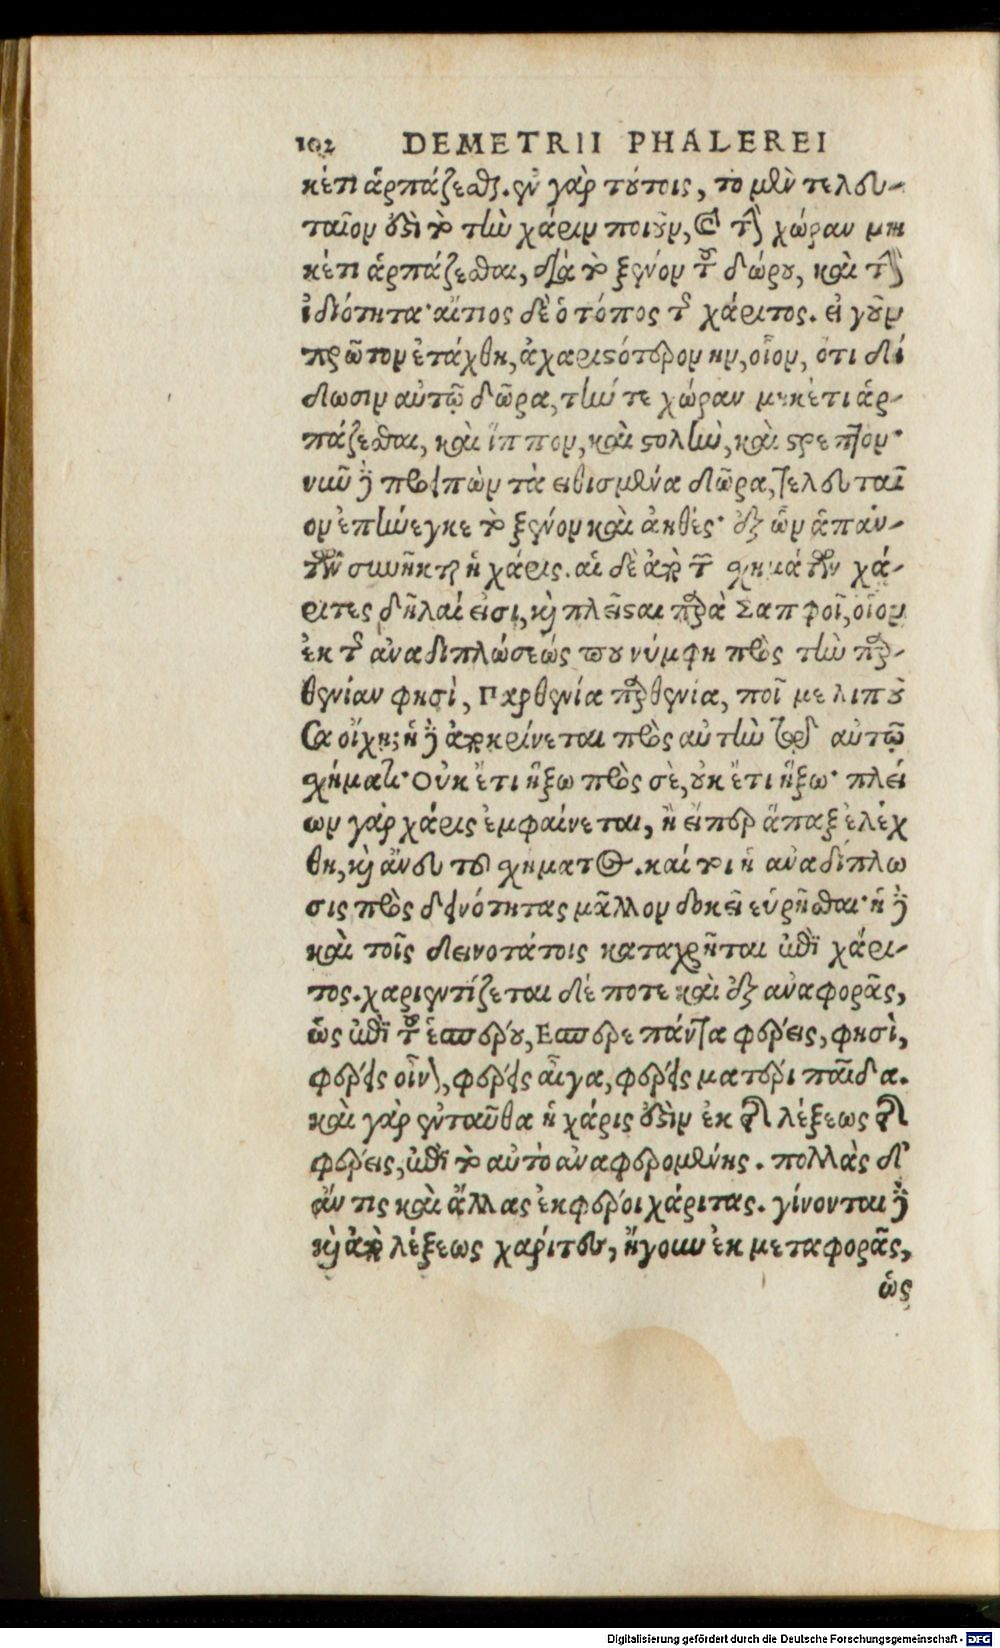 102 DEMETRII PHALEREI
κέτι ἁρπάζεσθαι. ἐν γὰρ τούτοις, τὸ μὲν τελευ-
ταῖον ὅτι τὸ τὴν χάριν ποιοῦν, καὶ τὴν χώραν μη
κέτι ἁρπάζεσθαι, διὰ τὸ ξένον τοῦ δώρου, καὶ τὴν
ἰδιότητα· αἴτιος δὲ ὁ τόπος τῆς χάριτος. εἰ γοῦν
πρῶτον ἐτάχθη, ἀχαριστότερον ην, οἷον, ότι δί
δωσιν αὐτῷ δῶρα, τήν τε χώραν μηκέτι ἁρ-
πάζεσθαι, καὶ ἵππον, καὶ στολὴν, καὶ στρεπτον·
νῦν δὲ προειπὼν τὰ ειθισμένα δῶρα, τελευταῖ
ον ἐπήνεγκε τὸ ξένον καὶ ἀηθές· ἐξ ὧν ἁπάν-
των συνῆκται ἡ χάρις. αἱ δὲ ἀπὸ τῶν σχημάτων χά-
ριτες δῆλαί εἰσι, καὶ πλεῖσται παρὰ Σαπφοῖ, οἷον
ἐκ τῆς ἀναδιπλώσεώς που νύμφη πρὸς τὴν παρ-
θενίαν φησὶ, Παρθενία παρθενία, ποῖ με λιποῦ
σα οἴχῃ; ἡ δὲ ἀποκρίνεται πρὸς αὐτὴν τῷ αὐτῷ
σχήματι· Οὐκ ἔτι ἥξω πρὸς σὲ, οὐκ ἔτι ἥξω· πλεί
ων γὰρ χάρις ἐμφαίνεται, ἢ εἴπερ ἅπαξ ἐλέχ
θη, καὶ ἄνευ τοῦ σχήματος. καί τοι ἡ ἀναδίπλω
σις πρὸς δεινότητας μᾶλλον δοκεῖ εὑρῆσθαι· ἡ δὲ
καὶ τοῖς δεινοτάτοις καταχρῆται ἐπὶ χάρι-
τος. χαριεντίζεται δέ ποτε καὶ ἐξ αναφορᾶς,
ὡς ἐπὶ τοῦ ἑσπέρου, Εσπερε πάντα φέρεις, φησὶ,
φέρεις οἶν, φέρεις αἶγα, φέρεις ματέρι παῖδα.
καὶ γὰρ ἐνταῦθα ἡ χάρις ἐστὶν ἐκ τῆς λέξεως τῆς
φέρεις, ἐπὶ τὸ αὐτὸ αναφερομένης. πολλὰς δ'
ἄν τις καὶ ἄλλας ἐκφέροι χάριτας. γίνονται δὲ
καὶ ἀπὸ λέξεως χάριτες, ἤγουν ἐκ μεταφορᾶς,
ὡς
Digitalisierung gefördert durch die Deutsche Forschungsgemeinschaft - DFG